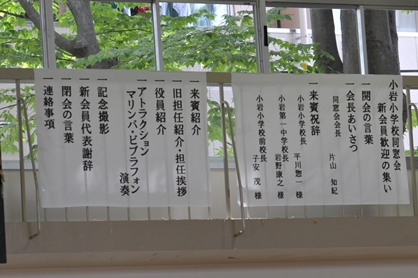 小岩小学校同窓会
新会員歓迎の集い
一開会の言葉
一会長あいさつ
同窓会会長 片山 知紀
一来賓祝辞
小岩小学校長 平川惣一 様
小岩第一中学校長 岩野康之 様
小岩小学校前校長 子安 茂 様
一来賓紹介
一旧担任紹介・担任挨拶
一役員紹介
一アトラクション
マリンバ・ビブラフォン
演奏
一記念撮影
一新会員代表謝辞
一閉会の言葉
一連絡事項